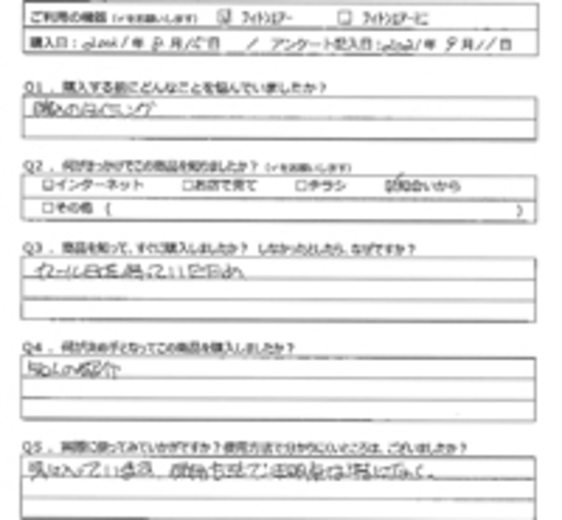 ご利用の機器 (✓をお願いします) ☑ ファイトンエアー ☐ ファイトンエアーミニ
購入日: 2021年 8月15日 / アンケート記入日: 2021年 9月11日
Q1. 購入する前にどんなことを悩んでいましたか?
購入のタイミング
Q2. 何がきっかけでこの商品を知りましたか? (✓をお願いします)
☐インターネット ☐お店で見て ☐チラシ ☑知合いから
☐その他 ( )
Q3. 商品を知って、すぐに購入しましたか? しなかったとしたら、なぜですか?
セール日を待っていたため
Q4. 何が決め手となってこの商品を購入しましたか?
知人の紹介
Q5. 実際に使ってみていかがですか?使用方法で分かりにくいところは、ございましたか?
気に入っています。